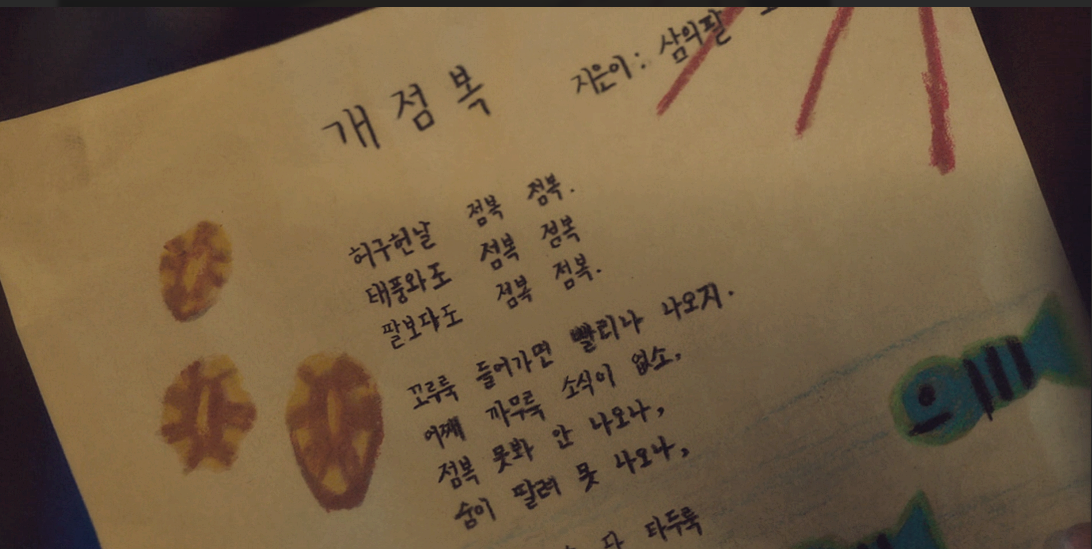 개점복
지은이: 삼의팔
허구헌날 점복 점복.
태풍와도 점복 점복
팔보다도 점복 점복.
꼬루룩 들어가면 빨리나 나오지.
어째 까무룩 소식이 없소,
점복 못봐 안 나오나,
숨이 딸려 못 나오나,
다 타두룩